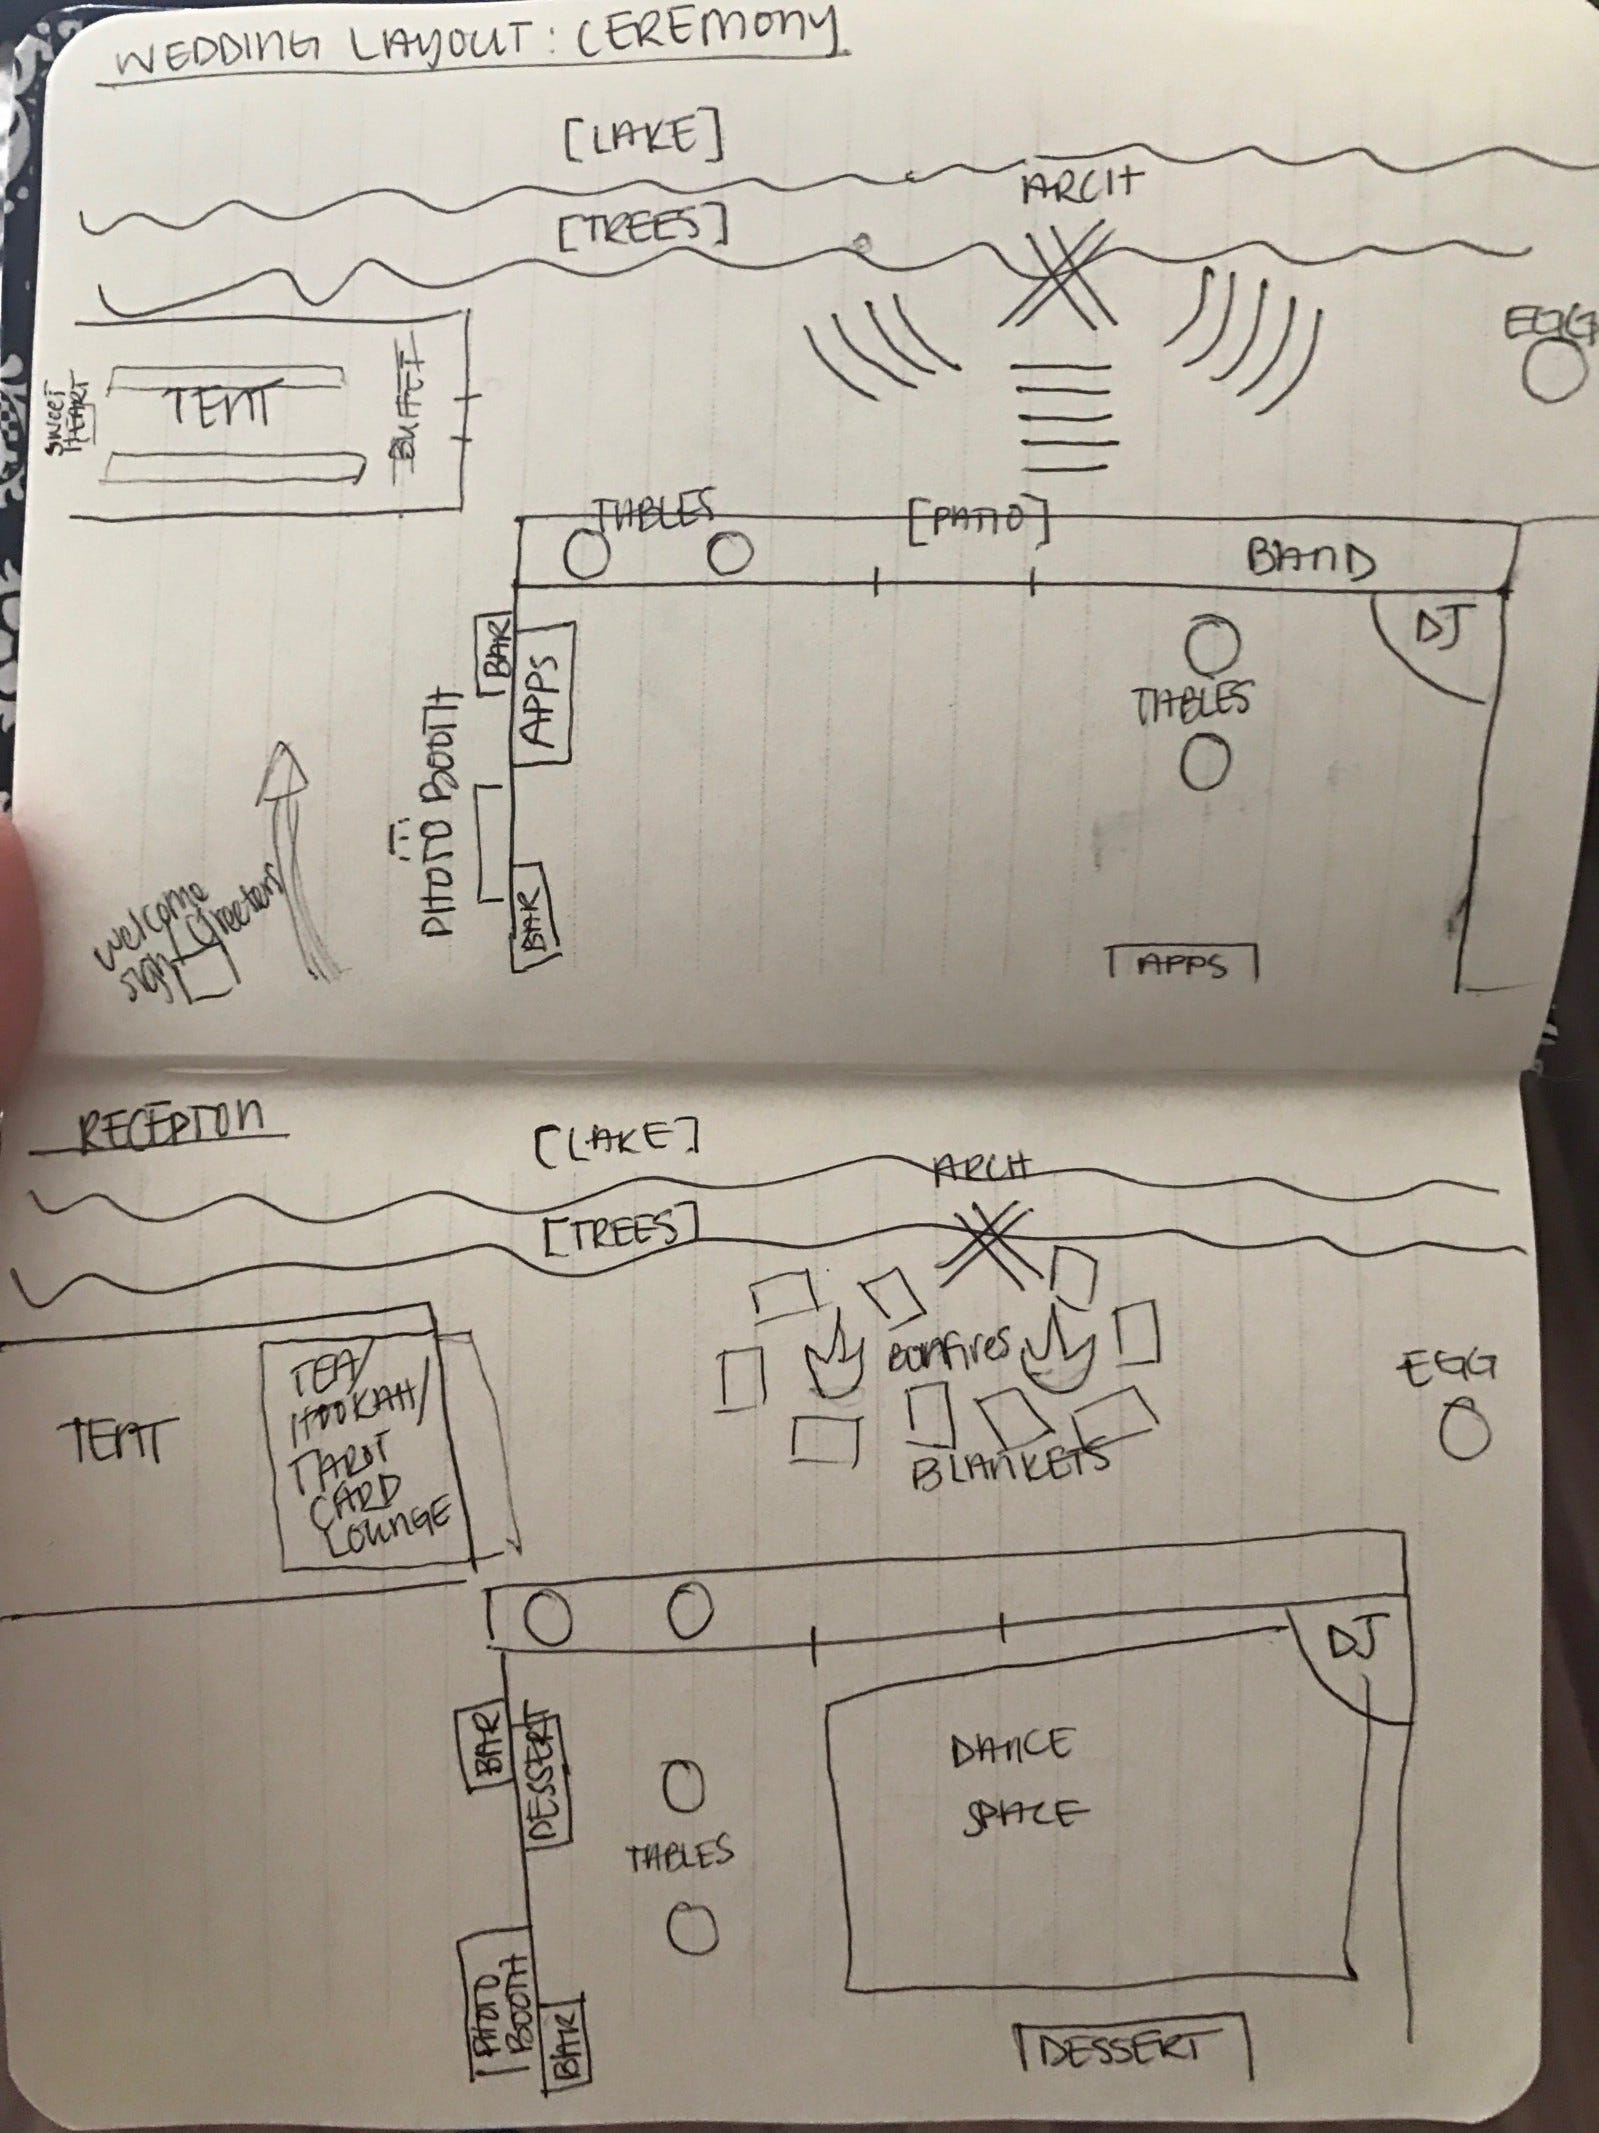 WEDDING LAYOUT: CEREMONY
[LAKE]
ARCH
[TREES]
EGG
SWEET
HEART
TENT
BUFFET
TABLES
[PATIO]
BAND
DJ
BAR
APPS
TABLES
PHOTO BOOTH
welcome
sign
Greeters
BAR
APPS
RECEPTION
[LAKE]
ARCH
[TREES]
Bonfires
EGG
TENT
TEA/
HOOKAH/
TAROT
CARD
LOUNGE
BLANKETS
DJ
BAR
DESSERT
DANCE
SPACE
TABLES
PHOTO
BOOTH
BAR
DESSERT